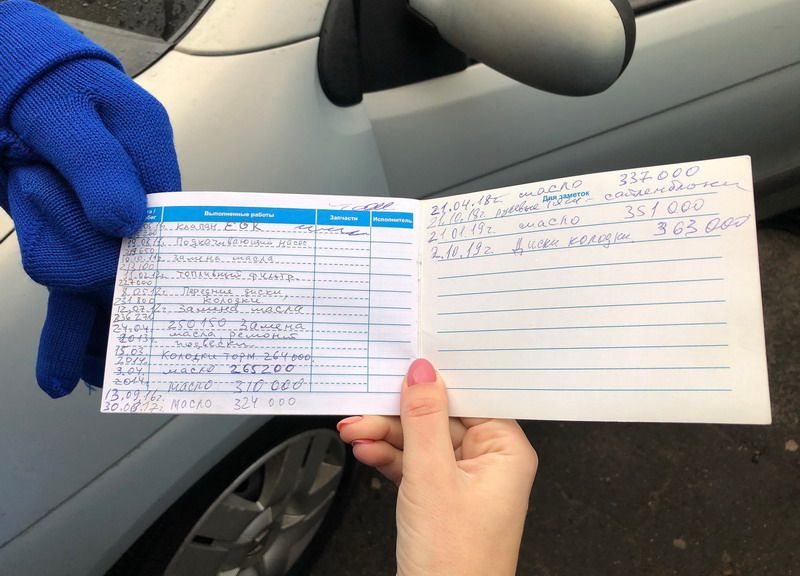 Выполненные работы Запчасти Исполнитель
клапан EGK
Подкачивающий насос
Замена масла
213100
топливный фильтр.
227000
Передние диски,
231800 колодки
12.07.12г. Замина масла
236270
24.04. 250150 Замена
2013г. масла ремонт
подвески
15.03 Колодки торм 264000
2014.
3.04. масло 265200
2014
масло 310 000
13.09.16г.
30.08.17г. масло 324 000
Для заметок
21.04.18г масло 337000
21.10.19г. рулевые тяги - сайленблоки
21.01.19г масло 351 000
2.10.19г. Диски колодки. 363 000